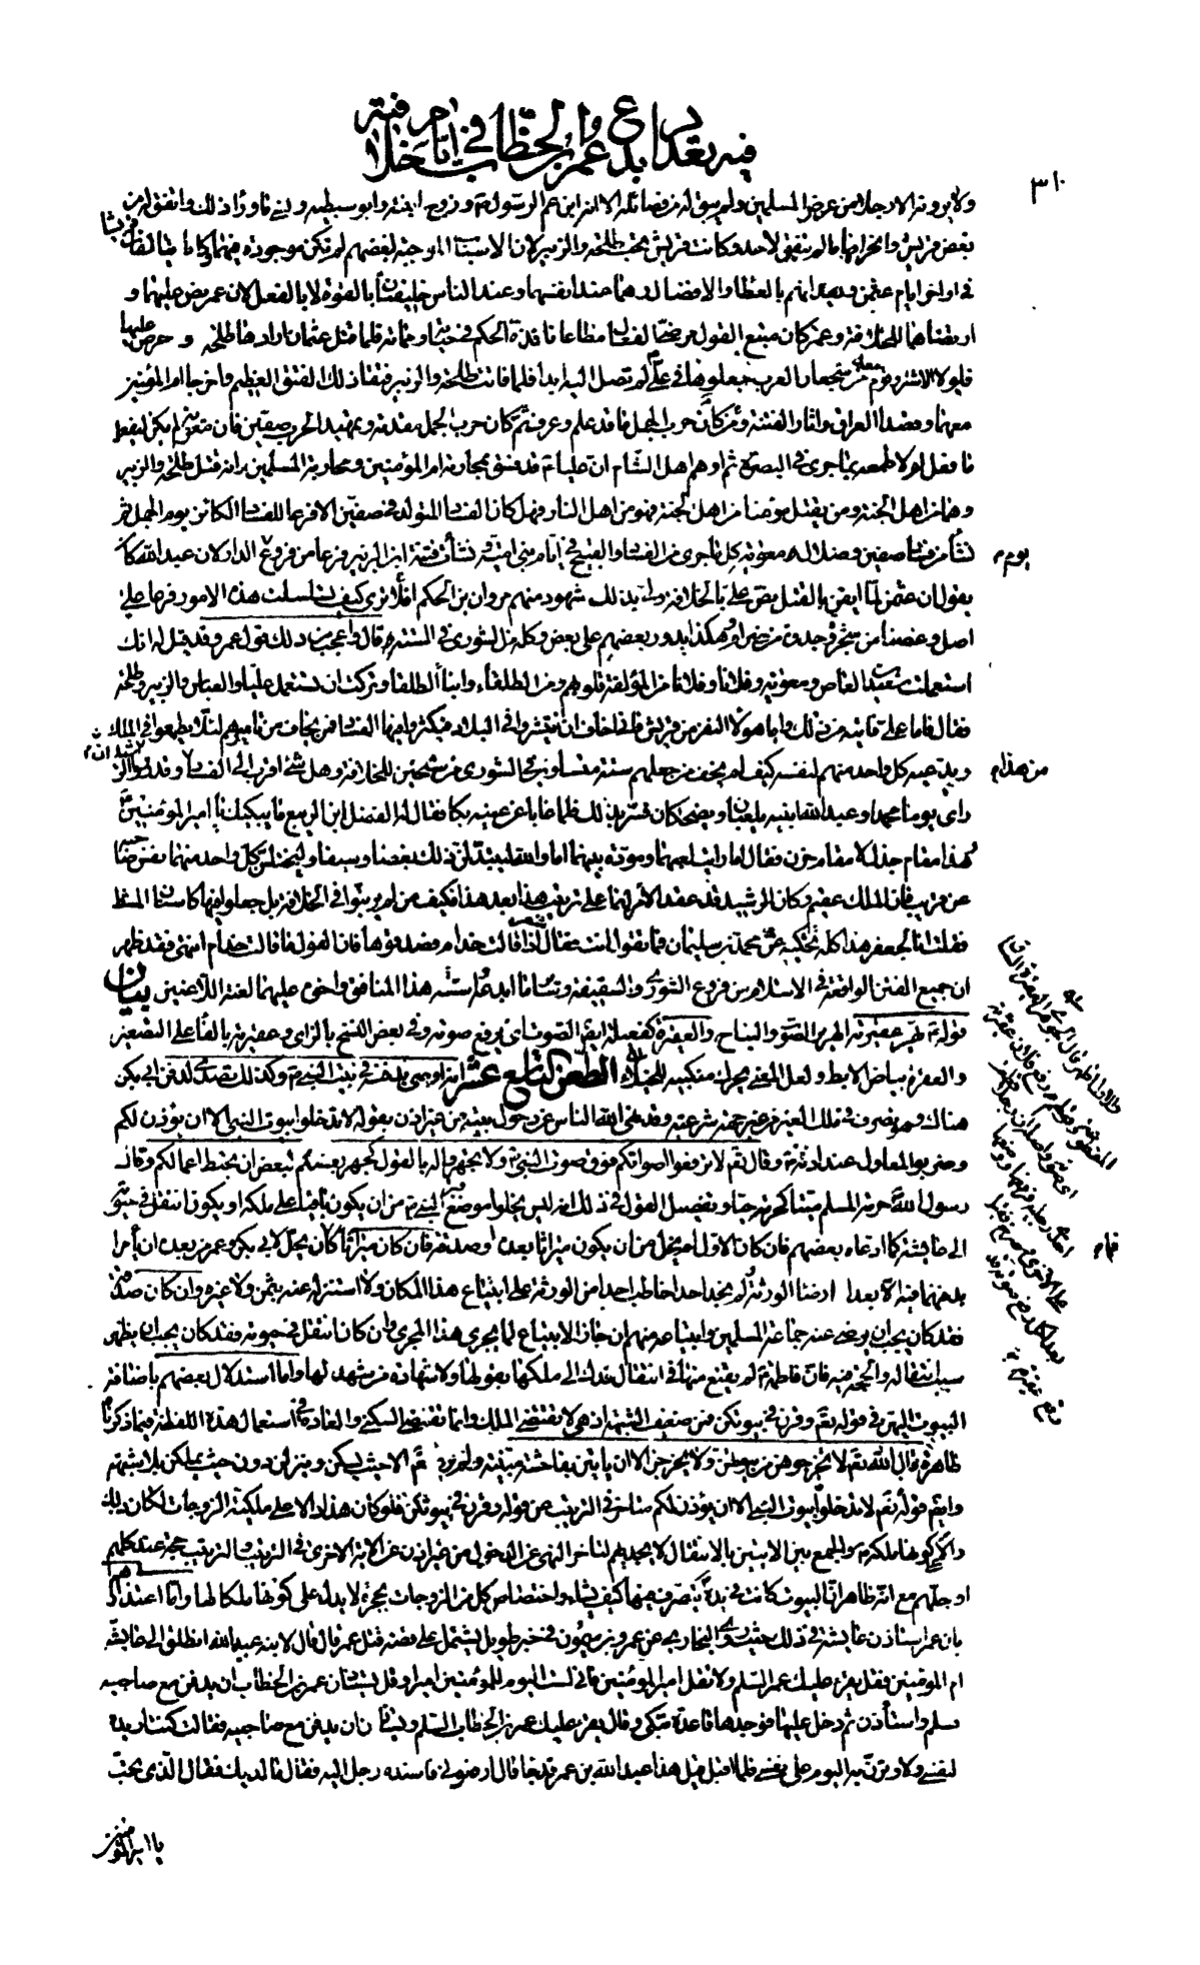 فيه تعداد بدع عمر بن الخطاب في ايام خلافته
٣١٠
ولا يرونه الا رجلا من عرض المسلمين ولم يبق له من فضائله الا انه ابن عم الرسول و زوج ابنته وابو سبطيه ونسي ما وراء ذلك واتفق له من
بغض قريش وانحرافها ما لم يتفق لاحد وكانت قريش تحب طلحة والزبير لان الاسباب الموجبة لبغضهم لم تكن موجودة فيهما وكانا يتالفان قريشا
في اواخر ايام عثمان ويعدانهم بالعطاء والافضال وهما عند انفسهما وعند الناس خليفتان بالقوة لا بالفعل لان عمر نص عليهما و
ارتضاهما للخلافة وعمر كان متبع القول مرضي الفعال مطاعا نافذ الحكم في حياته ومماته فلما قتل عثمان ارادها طلحة و حرص عليها
فلولا الاشتر وقوم معه من شجعان العرب جعلوها في علي لم تصل اليه ابدا فلما فاتت طلحة والزبير فتقا ذلك الفتق العظيم واخرجا ام المؤمنين
معهما وقصدا العراق واثارا الفتنة وكان من حرب الجمل ما قد علم وعرف ثم كان حرب الجمل مقدمة وتمهيدا لحرب صفين فان معوية لم يكن ليفعل
ما فعل لولا طمعه بما جرى في البصرة ثم اوهم اهل الشام ان عليا قد فسق بمحاربة ام المؤمنين ومحاربة المسلمين وانه قتل طلحة والزبير
وهما من اهل الجنة ومن يقتل مؤمنا من اهل الجنة فهو من اهل النار فهل كان الفساد المتولد في صفين الا فرعا للفساد الكائن يوم الجمل ثم
نشأ من فساد صفين وضلال معوية كل ما جرى من الفساد والقبيح في ايام بني امية ونشأت فتنة ابن الزبير فرعا من فروع الدار لان عبد الله كان
يوم
يقول ان عثمان لما ايقن بالقتل نص علي بالخلافة ولي بذلك شهود منهم مروان بن الحكم افلا ترى كيف تسلسلت هذه الامور فرعا على
اصل وغصنا من شجرة وجذوة من ضرام هكذا يدور بعضهم على بعض وكله من الشورى في الستة قال واعجب من ذلك قول عمر وقد قيل له انك
استعملت سعيد بن العاص ومعوية وفلانا وفلانا من المؤلفة قلوبهم ومن الطلقاء وابناء الطلقاء وتركت ان تستعمل عليا والعباس والزبير وطلحة
فقال اما علي فانبه من ذلك واما هؤلاء النفر من قريش فاني اخاف ان ينتشروا في البلاد فيكثروا فيها الفساد فمن يخاف من تاميرهم لئلا يطمعوا في الملك
ويدعيه كل واحد منهم لنفسه كيف لم يخف من جعلهم ستة متساوين في الشورى مرشحين للخلافة وهل شيء اقرب الى الفساد من هذا وقد روي ان الرشيد
من هذا
راى يوما محمدا وعبد الله ابنيه يلعبان ويضحكان فسر بذلك فلما غابا عن عينيه بكا فقال له الفضل ابن الربيع ما يبكيك يا امير المؤمنين
وهذا مقام جذل لا مقام حزن فقال اما رايت لعبهما ومودة بينهما اما والله ليتبدلن ذلك بغضا وسيفا وليختلسن كل واحد منهما نفس صاحبه
عن قريب فان الملك عقيم وكان الرشيد قد عقد الامر لهما على ترتيب هذا بعد هذا فكيف من لم يرتبوا في الخلافة بل جعلوا فيها كاسنان المشط
فقلت انا لجعفر هذا كله تحكيه عن محمد بن سليمان فما تقول انت فقال اذا قالت حذام فصدقوها فان القول ما قالت حذام انتهى فقد ظهر
ان جميع الفتن الواقعة في الاسلام من فروع الشورى والسقيفة وساير ما ابدعه واسسه هذا المنافق واخوه عليهما لعنة اللاعنين بيان
والعفرة بياض الابط ولعل المعنى يحرك منكبيه للخيلاء الطعن التاسع عشر انه اوصى بدفنه في بيت النبي وكذلك تصدى لدفن ابي بكر
هناك وهو تصرف في ملك الغير من غير جهة شرعية وقد نهى الله الناس عن دخول بيته من غير اذن بقوله لا تدخلوا بيوت النبي الا ان يؤذن لكم
وضربوا المعاول عند اذنه وقال تعم لا ترفعوا اصواتكم فوق صوت النبي ولا تجهروا له بالقول كجهر بعضكم لبعض ان تحبط اعمالكم وقال
رسول الله حرمة المسلم ميتا كحرمته حيا وتفصيل القول في ذلك انه ليس يخلو موضع قبر النبي من ان يكون باقيا على ملكه او يكون انتقل في حيوته
الى عايشة كما ادعاه بعضهم فان كان الاول لم يخل من ان يكون ميراثا بعده او صدقة فان كان ميراثا فما كان يحل لابي بكر وعمر من بعده ان يأمرا
بدفنهما فيه الا بعد ارضاء الورثة ولم نجد احدا خاطب احدا من الورثة على ابتياع هذا المكان ولا استنزله عنه بثمن ولا غيره وان كان صدقة
فقد كان يجب ان يرضى عنه جماعة المسلمين وابتياعه منهم ان جاز الابتياع لما يجري هذا المجرى وان كان انتقل في حيوته فقد كان يجب ان يظهر
سبب انتقاله والحجة فيه فان فاطمة لم يقنع منها في انتقال فدك الى ملكها بقولها ولا شهادة من شهد لها واما استدلال بعضهم باضافة
البيوت اليهن في قوله تعم وقرن في بيوتكن فمن ضعيف الشبهة اذ هي لا تقتضي الملك وانما تقتضي السكنى والعادة في استعمال هذه اللفظة فيما ذكرناه
ظاهرة قال الله تعم لا تخرجوهن من بيوتهن ولا يخرجن الا ان ياتين بفاحشة مبينة ولم يرد تعم الا حيث يسكن وينزلن دون حيث يملكن بلا شبهة
وايضا قوله تعم لا تدخلوا بيوت النبي الا ان يؤذن لكم متاخر في الترتيب عن قوله وقرن في بيوتكن فلو كان هذا دالا على ملكية الزوجات لكان ذلك
دالا على كونها ملكه والجمع بين الايتين بالانتقال لا يجديهم لتاخر النهي عن الدخول من غير اذن عن الاية الاخرى في الترتيب والترتيب حجة عند كلهم
او جلهم مع انه ظاهر ان البيوت كانت في يده يتصرف فيها كيف يشاء واختصاص كل من الزوجات بحجرة لا يدل على كونها ملكا لها واما اعتذارهم
بان عمر استاذن عايشة في ذلك حيث روى البخاري عن عمرو بن ميمون في خبر طويل يشتمل على قصة قتل عمر قال قال لابنه عبد الله انطلق الى عايشة
ام المؤمنين فقل يقرء عليك عمر السلم ولا تقل امير المؤمنين فاني لست اليوم للمؤمنين اميرا وقل يستاذن عمر بن الخطاب ان يدفن مع صاحبيه
فسلم واستأذن ثم دخل عليها فوجدها قاعدة تبكي وقال يقرء عليك عمر بن الخطاب السلم ويستاذن ان يدفن مع صاحبيه فقالت كنت اريده
لنفسي ولاوثرنه اليوم على نفسي فلما اقبل قيل هذا عبد الله بن عمر قد جاء قال ارفعوني فاسنده رجل اليه فقال ما لديك فقال الذي تحب
يا امير المؤمنين